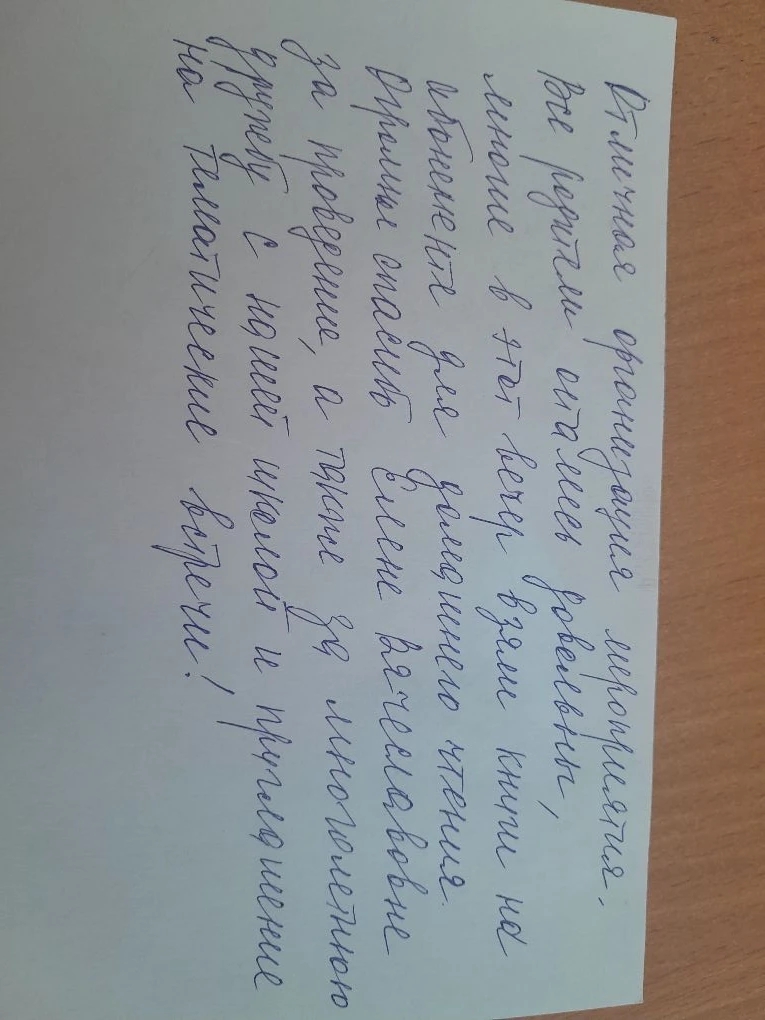 Отличная организация мероприятия.
Все родители остались довольны,
многие в этот вечер взяли книги на
абонементе для домашнего чтения.
Огромные спасибо Елене Вячеславовне
за проведение, а также за многолетнюю
дружбу с нашей школой и приглашение
на тематические встречи!